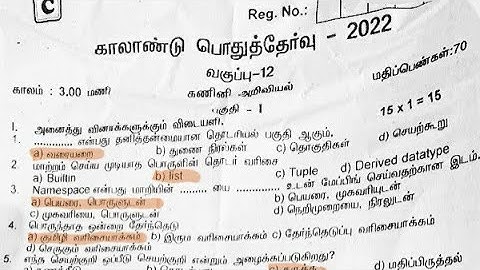 C
Reg. No.:
காலாண்டு பொதுத்தேர்வு - 2022
வகுப்பு-12
மதிப்பெண்கள்:70
காலம் : 3.00 மணி
கணினி அறிவியல்
பகுதி - I
15 x 1 = 15
I. அனைத்து வினாக்களுக்கும் விடையளி.
1. ............ என்பது தனித்தன்மையான தொடரியல் பகுதி ஆகும்.
a) வரையறை b) துணை நிரல்கள் c) தொகுதிகள் d) செயற்கூறு
2. மாற்றம் செய்ய முடியாத பொருளின் தொடர் வரிசை
a) Builtin b) list c) Tuple d) Derived datatype
3. Namespace என்பது மாறியின் ........ யை ........ உடன் மேப்பிங் செய்வதற்கான இடம்.
a) பெயரை, பொருளுடன் b) பெயரை, முகவரியுடன்
c) முகவரியை, பொருளுடன் d) நெறிமுறையை, நிரலுடன்
4. பொருந்தாத ஒன்றை தேர்ந்தெடு
a) குமிழி வரிசையாக்கம் b) இரும வரிசையாக்கம் c) தேர்ந்தெடுப்பு வரிசையாக்கம்
d) செருகும் வரிசையாக்கம்
5. எந்த செயற்குறி ஒப்பீடு செயற்குறி என்றும் அழைக்கப்படுகிறது?
d) மதிப்பிருத்தல்